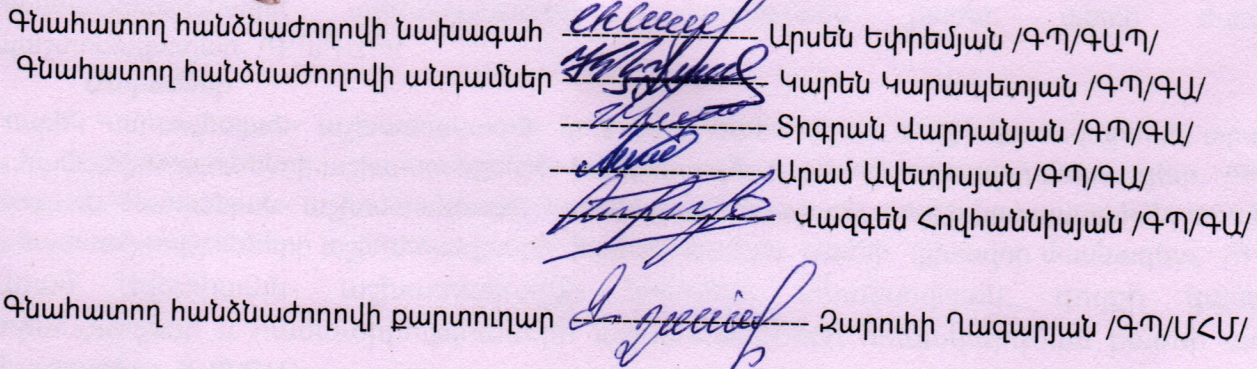 Գնահատող հանձնաժողովի նախագահ ---------------- Արսեն Եփրեմյան /ԳՊ/ԳԱՊ/
Գնահատող հանձնաժողովի անդամներ ---------------- Կարեն Կարապետյան /ԳՊ/ԳԱ/
---------------- Տիգրան Վարդանյան /ԳՊ/ԳԱ/
---------------- Արամ Ավետիսյան /ԳՊ/ԳԱ/
---------------- Վազգեն Հովհաննիսյան /ԳՊ/ԳԱ/
Գնահատող հանձնաժողովի քարտուղար ---------------- Զարուհի Ղազարյան /ԳՊ/ՄՀՄ/